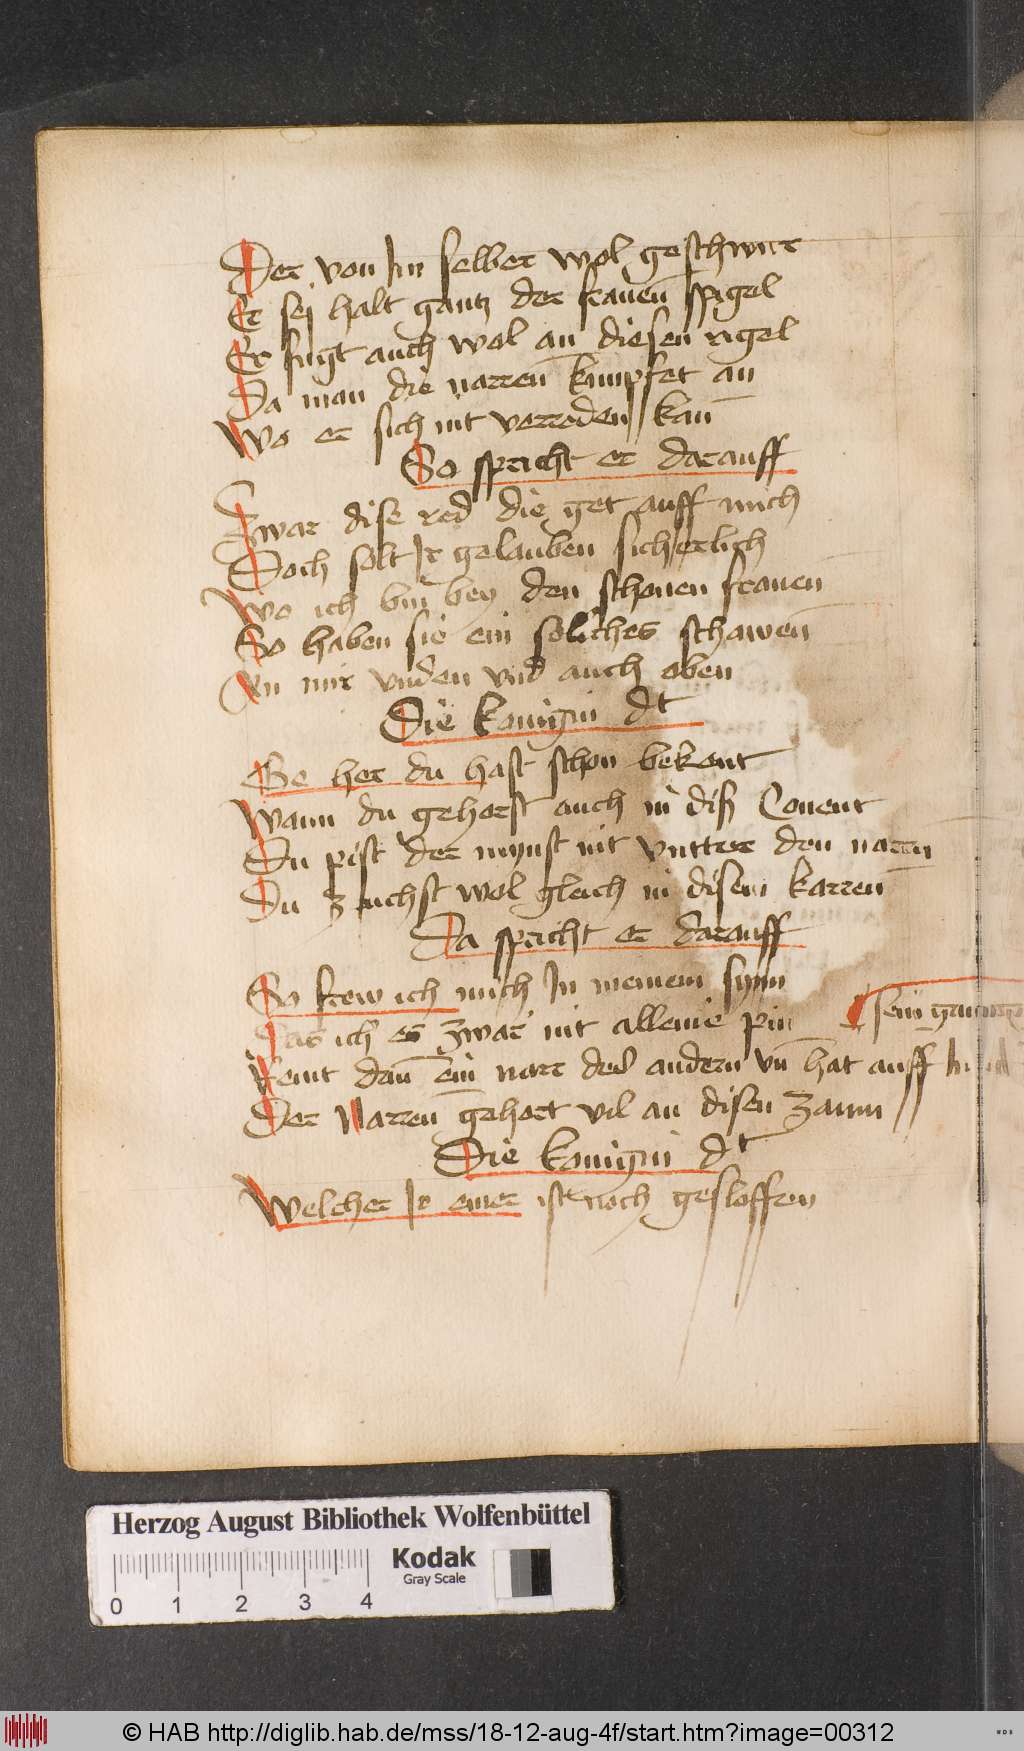 Der von Im selber wol geschwirt
Er sej halt gantz der frauen spigel
Er fugt auch wol an diesen rigel
Da man die narren knupfet an
Wo er sich nit verreden kan
So spricht er darauff
Zwar dise red die get auff mich
Doch solt Ir gelauben sicherlich
Wo ich bin bey den schonen frauen
So haben sie ein soliches schawen
An mir vnden vnd auch oben
Die konigin dt
Se her du hast schon bekant
Wann du gehorst auch in diß Conent
Du pist der mynst nit vntter den narrn
Du zuchst wol gleich in disem karren
Da spricht er darauff
So frew ich mich In meinem synn
Das ich es zwar nit alleine pin
sein
Kemt dan ein narr des andern vn hat auff In
Der Narren gehort vil an disen zaunn
Die konigin dt
Welcher Ir einer ist noch gesloffen
Herzog August Bibliothek Wolfenbüttel
Kodak
Gray Scale
0 1 2 3 4
© HAB http://diglib.hab.de/mss/18-12-aug-4f/start.htm?image=00312
WDB